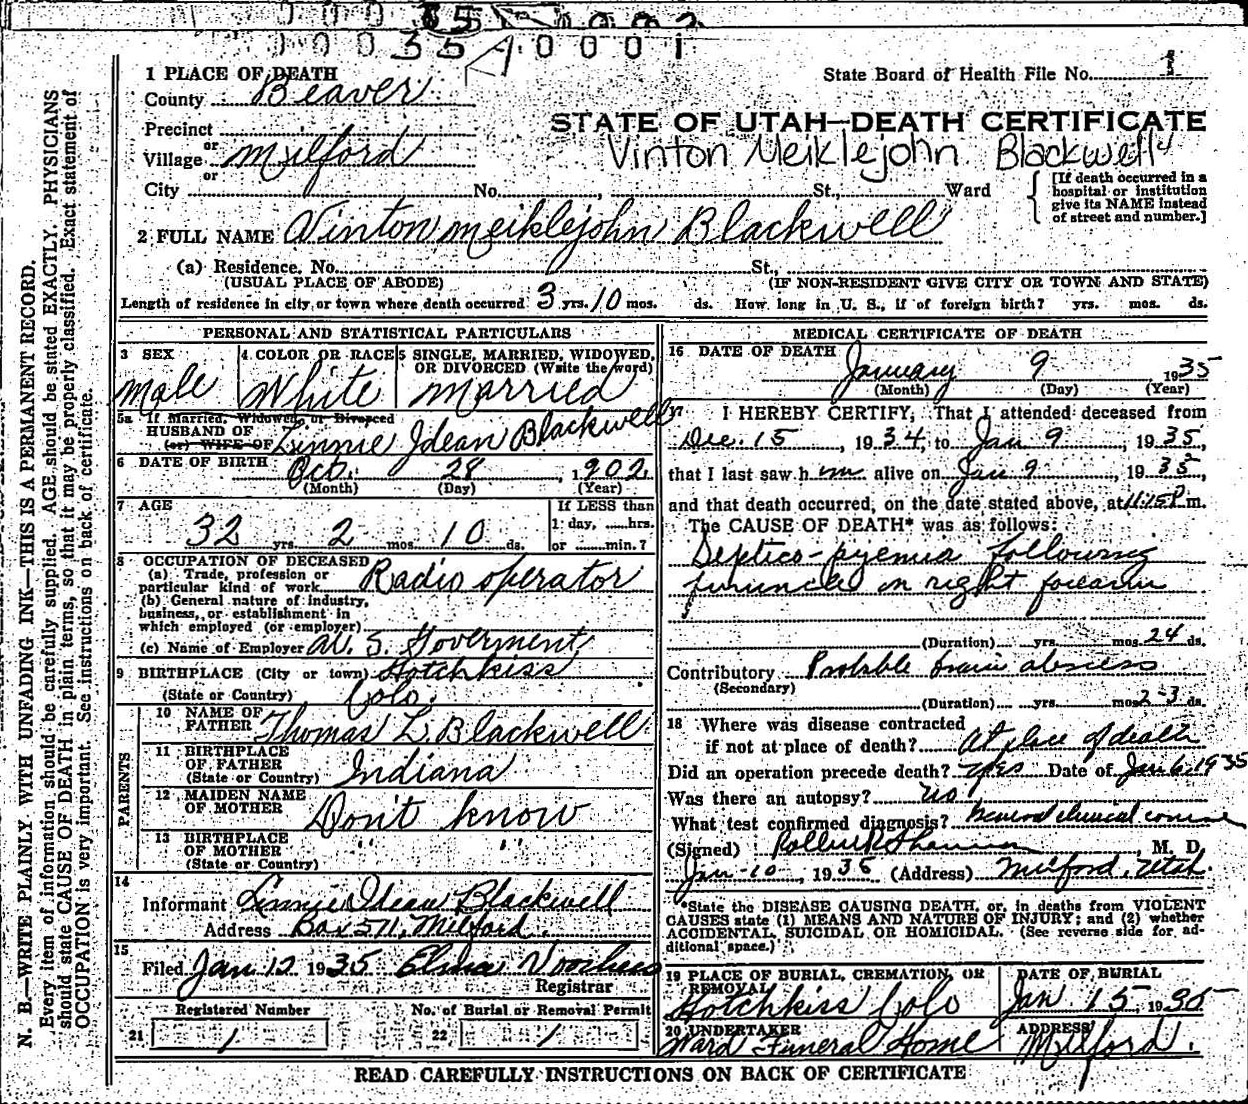 0003540001
1 PLACE OF DEATH
County Beaver
State Board of Health File No. 1
Precinct
or
Village Milford
or
STATE OF UTAH—DEATH CERTIFICATE
Vinton Meiklejohn Blackwell
City No. , St., Ward
[If death occurred in a hospital or institution give its NAME instead of street and number.]
2 FULL NAME Vinton Meiklejohn Blackwell
(a) Residence. No. St.,
(USUAL PLACE OF ABODE) (IF NON-RESIDENT GIVE CITY OR TOWN AND STATE)
Length of residence in city or town where death occurred 3 yrs. 10 mos. ds. How long in U. S., if of foreign birth? yrs. mos. ds.
PERSONAL AND STATISTICAL PARTICULARS
3 SEX
Male
4 COLOR OR RACE
White
5 SINGLE, MARRIED, WIDOWED, OR DIVORCED (Write the word)
Married
5a If Married, Widowed, or Divorced
HUSBAND OF
(or) WIFE OF Linnie Idean Blackwell
6 DATE OF BIRTH Oct. 28, 1902
(Month) (Day) (Year)
7 AGE
32 yrs. 2 mos. 10 ds.
If LESS than
1 day, hrs.
or min.?
8 OCCUPATION OF DECEASED
(a) Trade, profession or particular kind of work Radio operator
(b) General nature of industry, business, or establishment in which employed (or employer)
(c) Name of Employer U. S. Goverment
9 BIRTHPLACE (City or town) Hotchkiss
(State or Country) Colo.
PARENTS
10 NAME OF FATHER Thomas L. Blackwell
11 BIRTHPLACE OF FATHER (State or Country) Indiana
12 MAIDEN NAME OF MOTHER Don't know
13 BIRTHPLACE OF MOTHER (State or Country) " "
14
Informant Linnie Idean Blackwell
Address Box 571, Milford.
15
Filed Jan 12 1935 Elma Voorhees
Registrar
Registered Number
21 1
No. of Burial or Removal Permit
22 1
MEDICAL CERTIFICATE OF DEATH
16 DATE OF DEATH January 9 1935
(Month) (Day) (Year)
17 I HEREBY CERTIFY, That I attended deceased from
Dec. 15, 1934, to Jan 9, 1935,
that I last saw him alive on Jan 9, 1935,
and that death occurred, on the date stated above, at 11:15 P. m.
The CAUSE OF DEATH* was as follows:
Septico-pyemia following
furuncle on right forearm
(Duration) yrs. mos. 24 ds.
Contributory Probable brain abscess
(Secondary)
(Duration) yrs. mos. 2-3 ds.
18 Where was disease contracted
if not at place of death? At place of death
Did an operation precede death? yes Date of Jan 6, 1935
Was there an autopsy? no
What test confirmed diagnosis? clinical course
(Signed) M. D.
Jan-10, 1935 (Address) Milford, Utah.
*State the DISEASE CAUSING DEATH, or, in deaths from VIOLENT
CAUSES state (1) MEANS AND NATURE OF INJURY; and (2) whether
ACCIDENTAL, SUICIDAL OR HOMICIDAL. (See reverse side for ad-
ditional space.)
19 PLACE OF BURIAL, CREMATION, OR REMOVAL
Hotchkiss Colo
DATE OF BURIAL
Jan 15, 1935
20 UNDERTAKER
Ward Funeral Home
ADDRESS
Milford.
READ CAREFULLY INSTRUCTIONS ON BACK OF CERTIFICATE
N. B.—WRITE PLAINLY WITH UNFADING INK—THIS IS A PERMANENT RECORD.
Every item of information should be carefully supplied. AGE should be stated EXACTLY. PHYSICIANS
should state CAUSE OF DEATH in plain terms, so that it may be properly classified. Exact statement of
OCCUPATION is very important. See instructions on back of certificate.